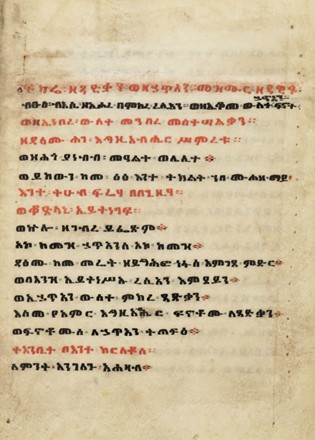 ፍካሬ፡ ዘጻድቃን፡ ወዘኃጥኣን፡ መዝሙር፡ ዘዳዊት፡
ብፁዕ፡ ብእሲ፡ ዘኢሖረ፡ በምክረ፡ ረሲዓን፡ ወዘኢቆመ፡ ውስተ፡ ፍኖተ፡
ኃጥኣን፡
ወዘኢነበረ፡ ውስተ፡ መንበረ፡ መስተሣልቃን፡
ዘዳዕሙ፡ ሕገ፡ እግዚአብሔር፡ ሥምረቱ፡
ወዘሕጎ፡ ያነብብ፡ መዓልተ፡ ወሌሊተ
ወይከውን፡ ከመ፡ ዕፅ፡ እንተ፡ ትክልት፡ ኀበ፡ ሙሐዘ፡ ማይ
እንተ፡ ትሁብ፡ ፍሬሃ፡ በበጊዜሃ፡
ወቈጽላኒ፡ ኢይትነገፍ፡
ወኵሎ፡ ዘገብረ፡ ይፌጽም፡
አኮ፡ ከመዝ፡ ኃጥኣንሰ፡ አኮ፡ ከመዝ
ዳዕሙ፡ ከመ፡ መሬት፡ ዘይግሕፎ፡ ነፋስ፡ እምገጸ፡ ምድር
ወበእንዝ፡ ኢይትነሥኡ፡ ረሲዓን፡ እምደይን
ወኢኃጥኣን፡ ውስተ፡ ምክረ፡ ጻድቃን
እስመ፡ የአምር፡ እግዚአብሔር፡ ፍኖቶሙ፡ ለጻድቃን
ወፍኖቶሙሰ፡ ለኃጥኣን፡ ትጠፍዕ
ትንቢት፡ በእንተ፡ ክርስቶስ፡
ለምንት፡ አንገለጉ፡ አሕዛብ፡